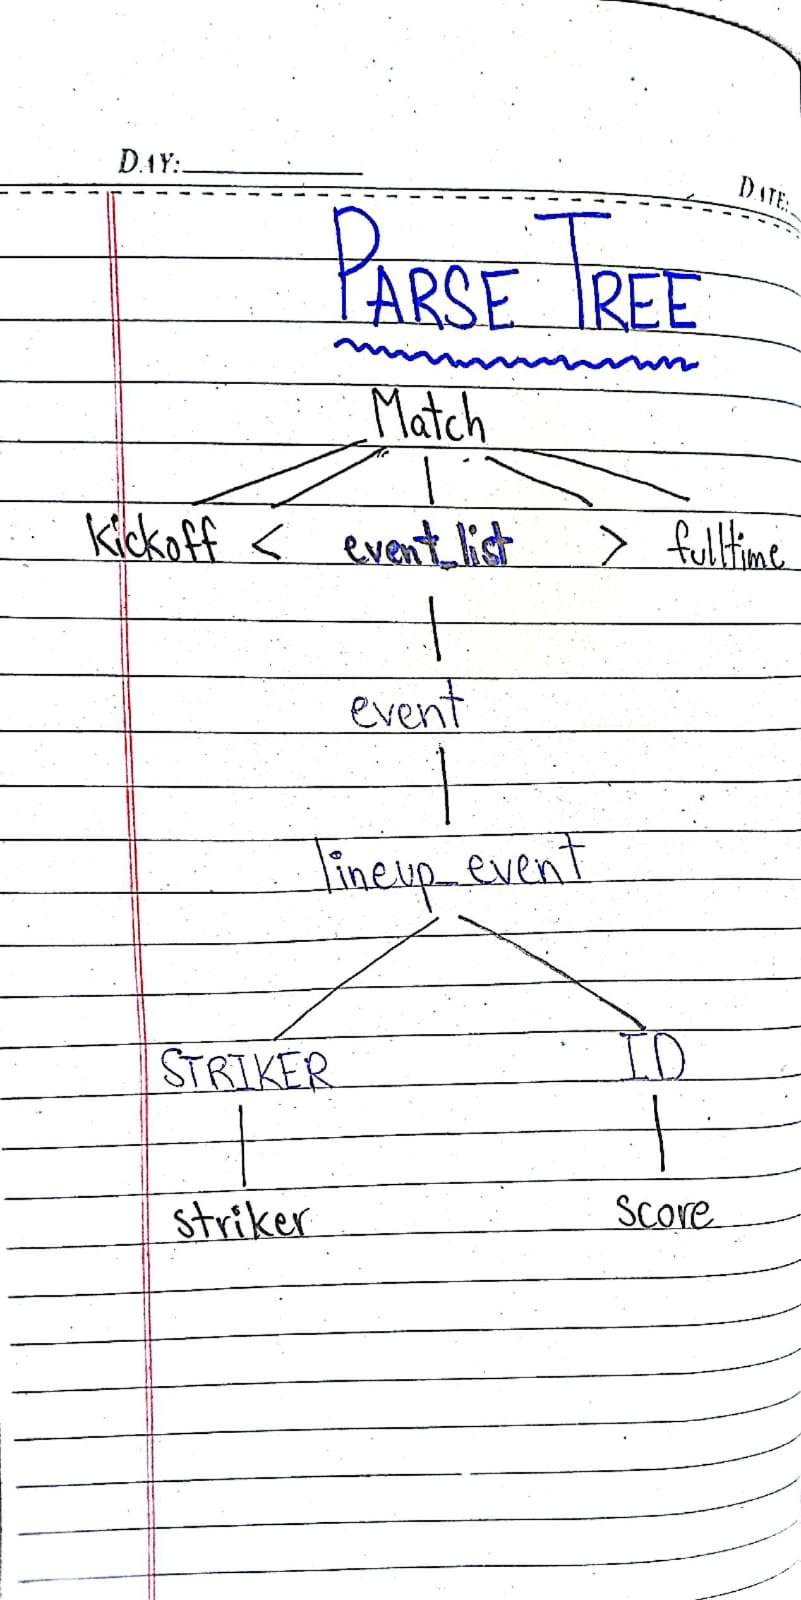 DAY:
DATE:
PARSE TREE
Match
kickoff < event_list > fulltime
event
lineup_event
STRIKER ID
striker score